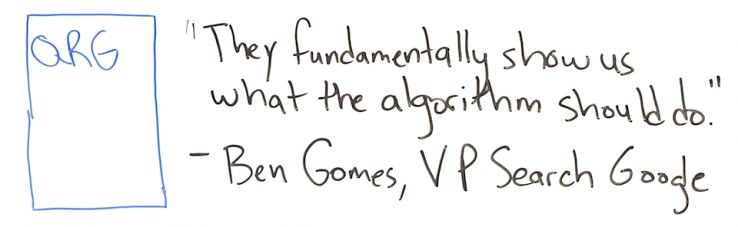 QRG
"They fundamentally show us
what the algorithm should do."
- Ben Gomes, VP Search Google